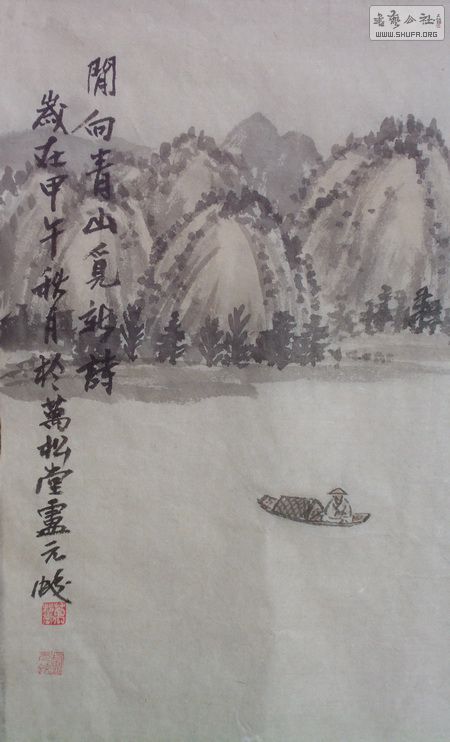 閒向青山覓新詩
歲在甲午秋月於萬松堂盧元
書藝公社
WWW.SHUFA.ORG